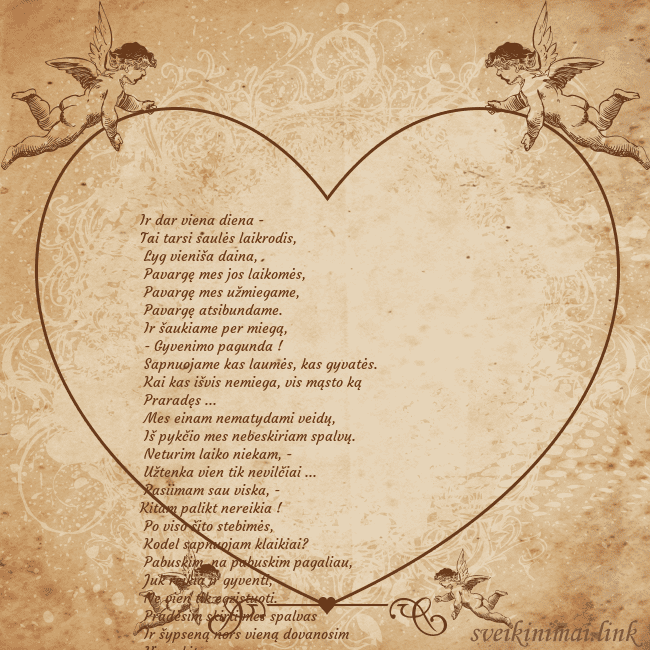 Ir dar viena diena -
Tai tarsi saulės laikrodis,
Lyg vieniša daina,
Pavargę mes jos laikomės,
Pavargę mes užmiegame,
Pavargę atsibundame.
Ir šaukiame per miegą,
- Gyvenimo pagunda !
Sapnuojame kas laumės, kas gyvatės.
Kai kas išvis nemiega, vis mąsto ką
Praradęs ...
Mes einam nematydami veidų,
Iš pykčio mes nebeskiriam spalvų.
Neturim laiko niekam, -
Užtenka vien tik nevilčiai ...
Pasiimam sau viska, -
Kitam palikt nereikia !
Po viso šito stebimės,
Kodel sapnuojam klaikiai?
Pabuskim, na pabuskim pagaliau,
Juk reikia ir gyventi,
Ne vien tik egzistuoti.
Pradėsim skirti mes spalvas
Ir šypseną nors vieną dovanosim
sveikinimai.link